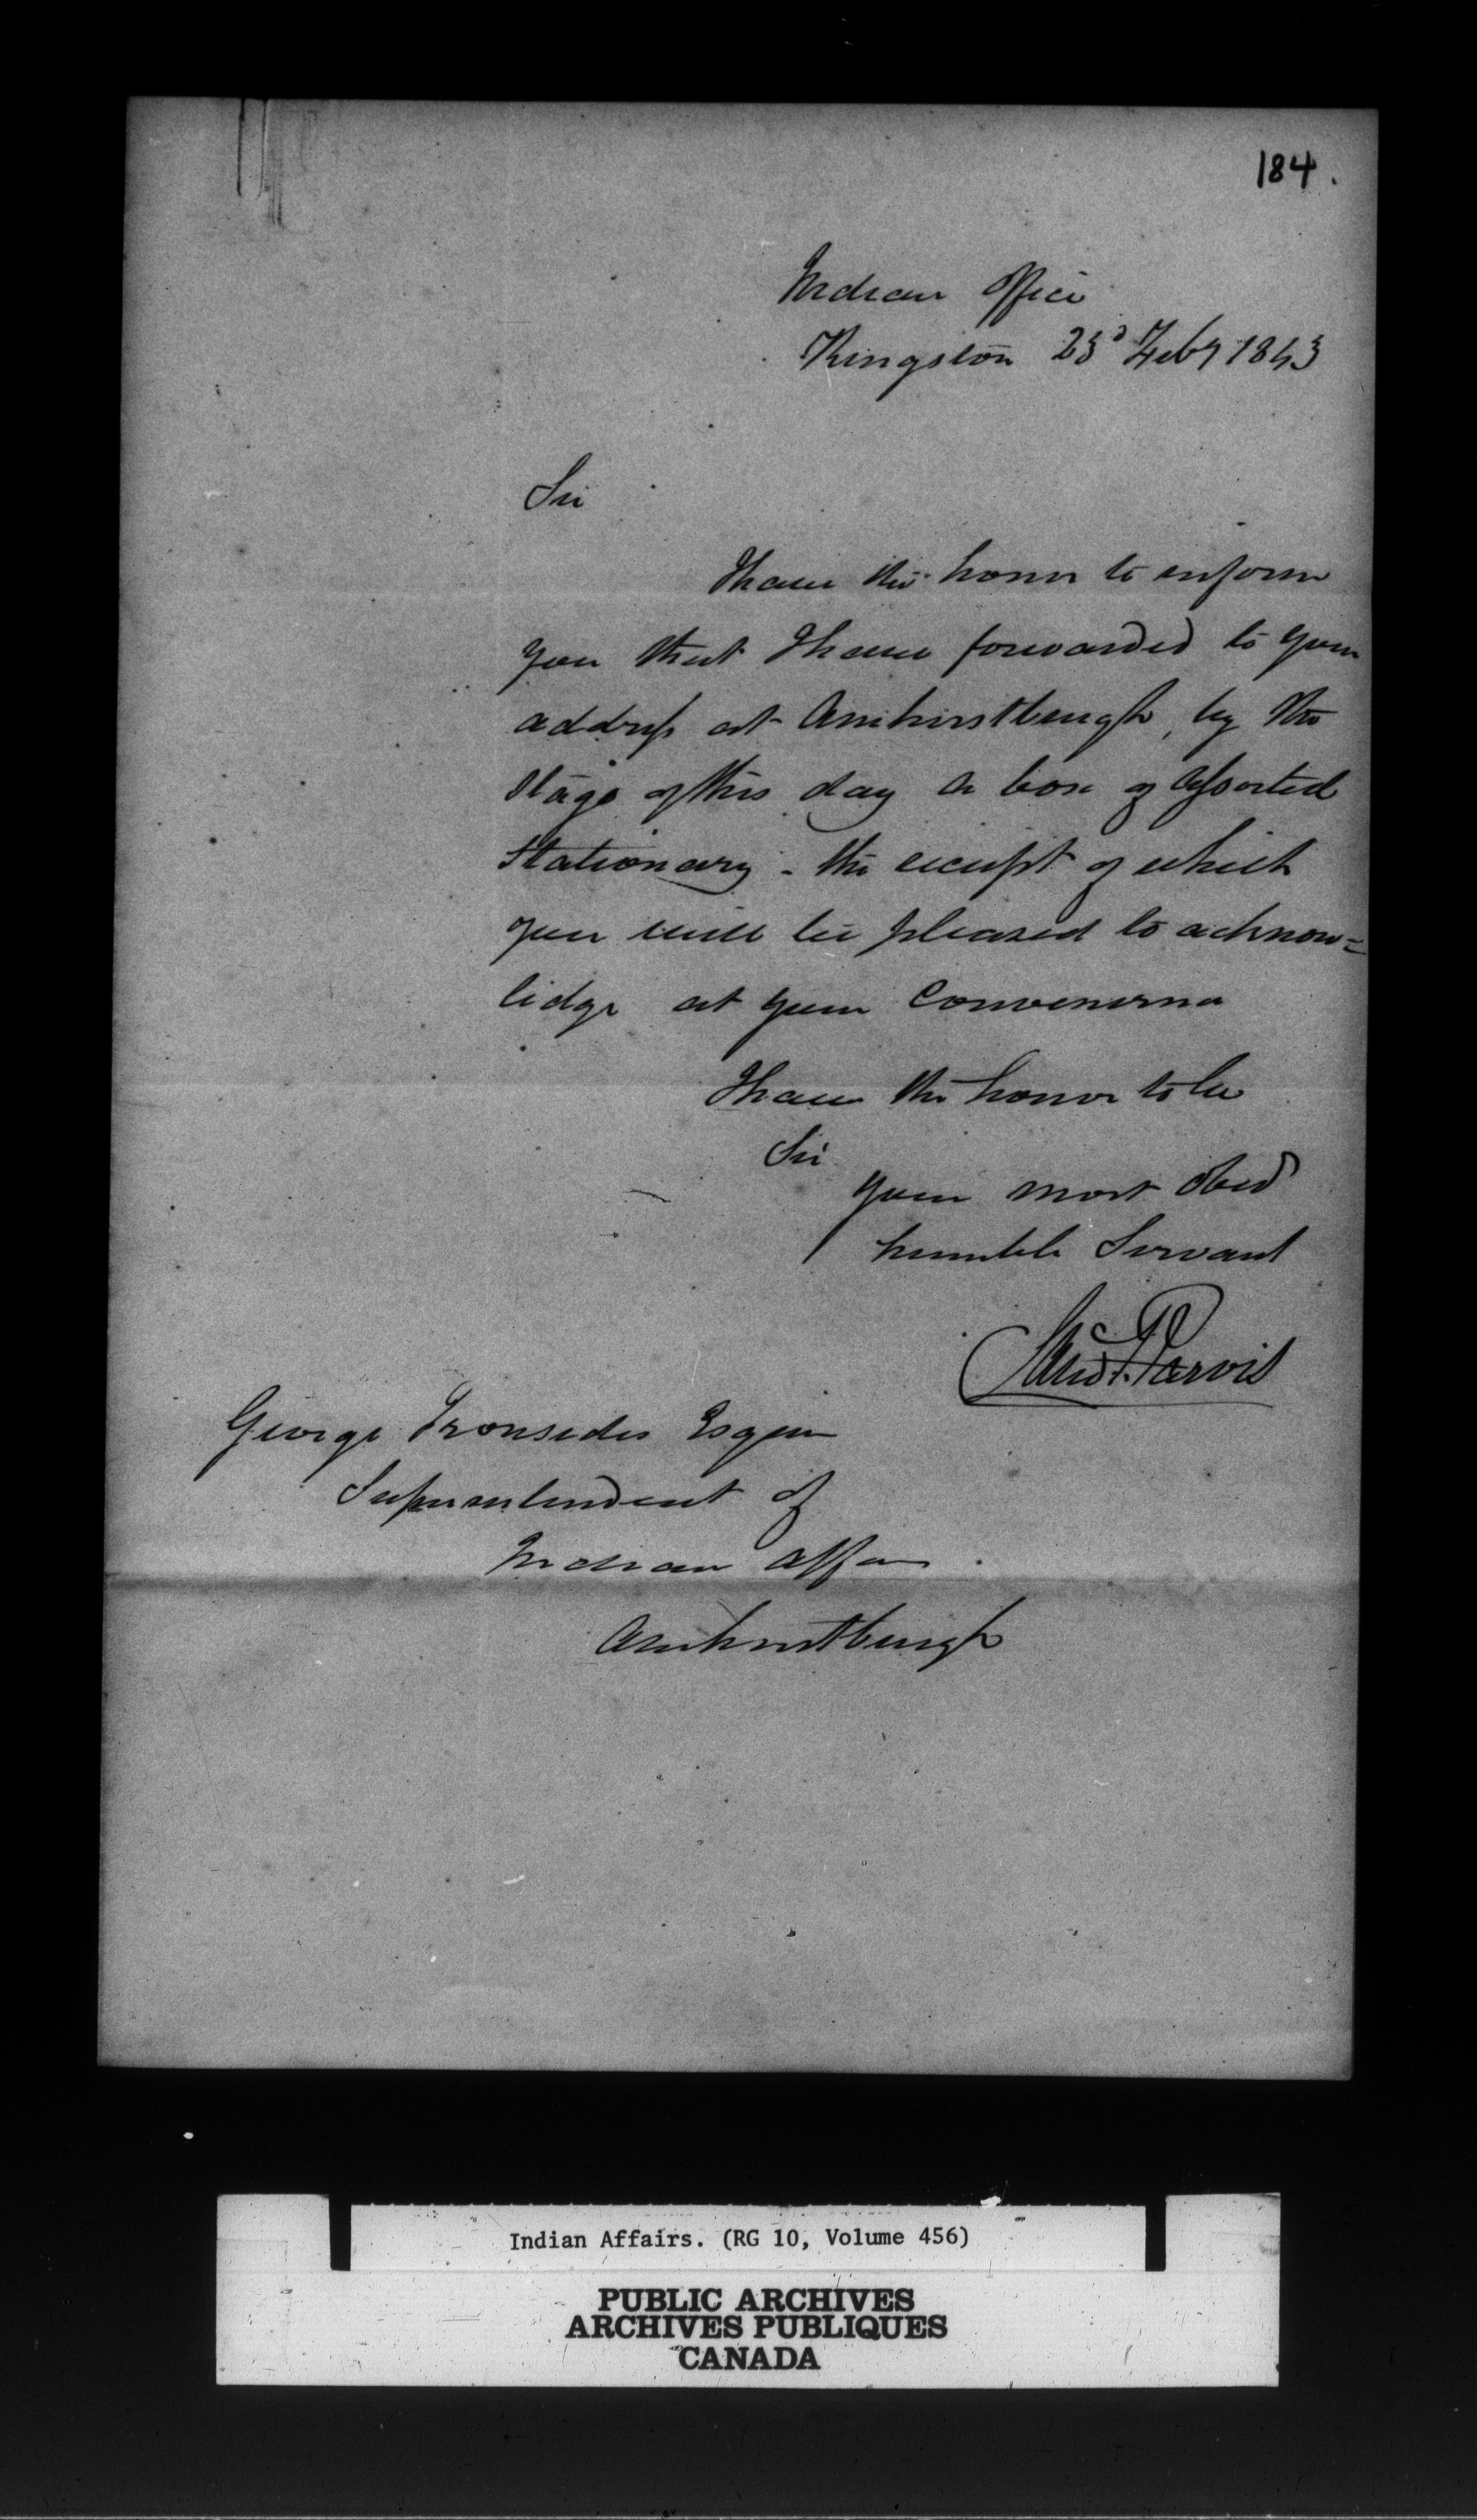 184.
Indian Office
Kingston 23d Feby 1843
Sir
I have the honor to inform
you that I have forwarded to your
address at Amherstburgh, by the
Stage of this day a box of assorted
Stationary - the receipt of which
you will be pleased to acknow=
ledge at your Convenience
I have the honor to be
Sir
your most Obed
humble Servant
Saml P. Jarvis
George Ironsides Esquire
Superintendent of
Indian Affairs
Amherstburgh
Indian Affairs. (RG 10, Volume 456)
PUBLIC ARCHIVES
ARCHIVES PUBLIQUES
CANADA